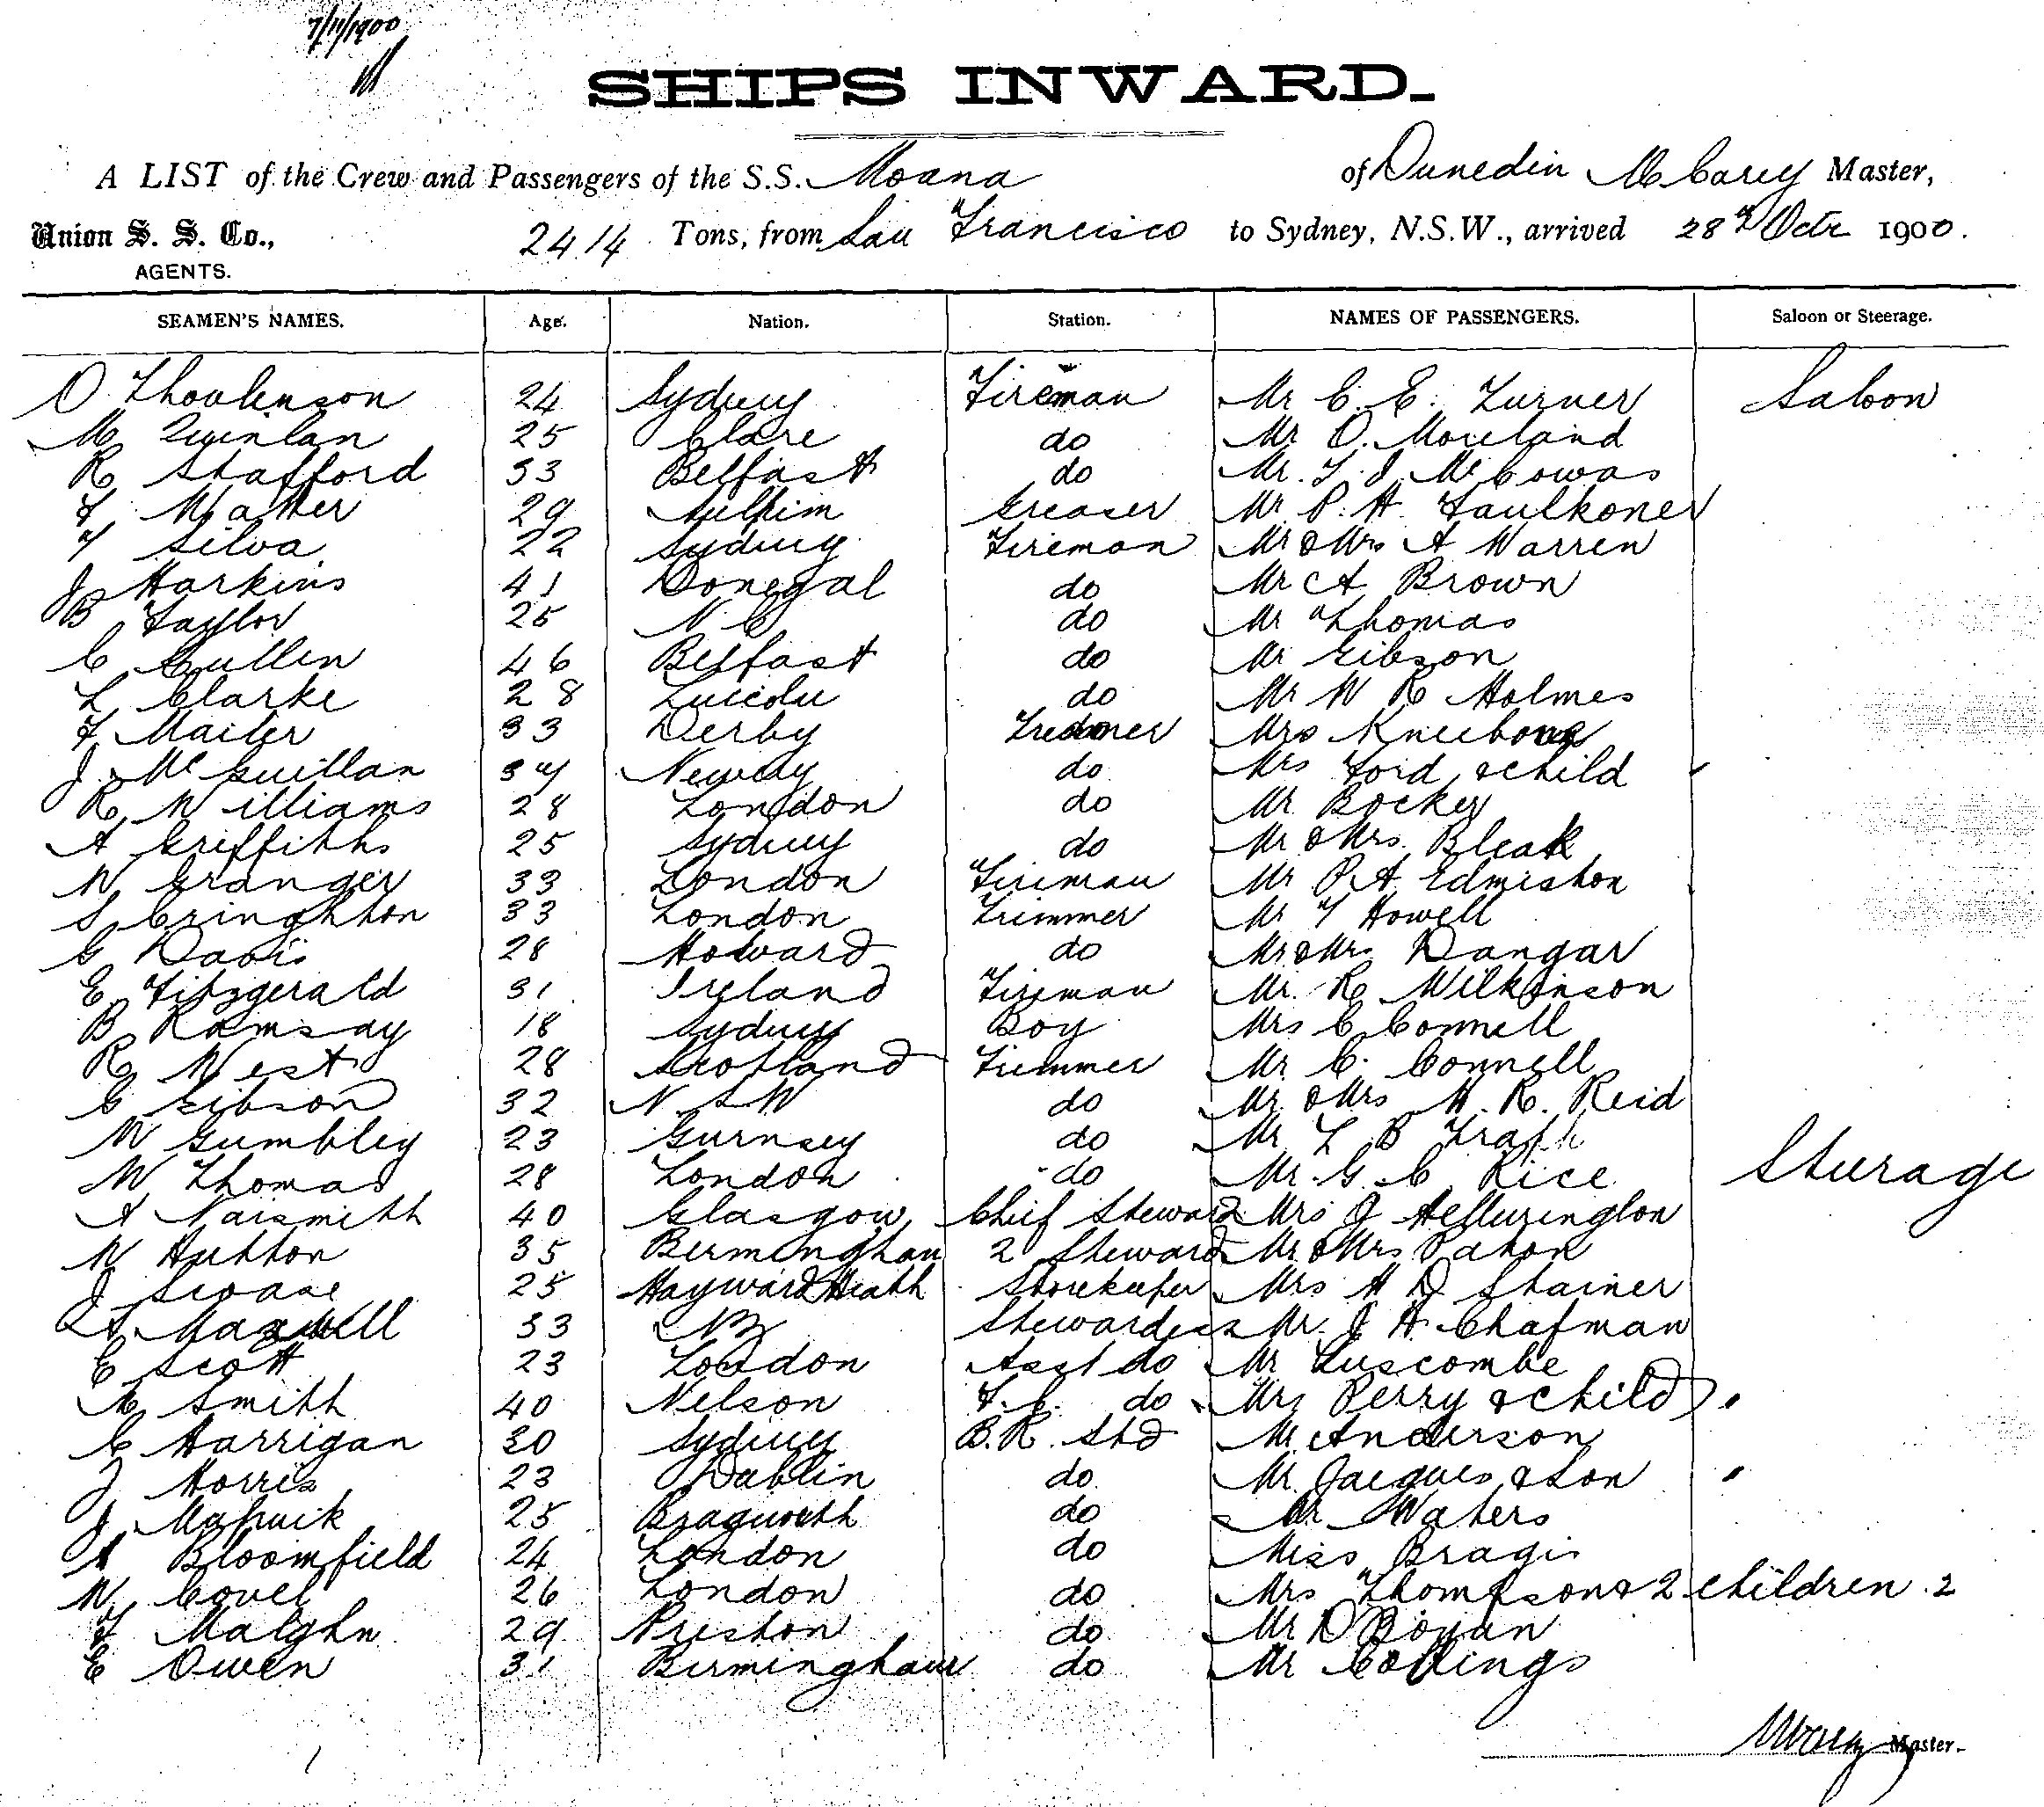 7/11/1900
SHIPS INWARD.
A LIST of the Crew and Passengers of the S.S. Moana of Dunedin M Carey Master,
Union S. S. Co., 2414 Tons, from San Francisco to Sydney, N.S.W., arrived 28th Octr 1900.
AGENTS.
SEAMEN'S NAMES. Age. Nation. Station. NAMES OF PASSENGERS. Saloon or Steerage.
O 24 Sydney Fireman Mr C. E. Turner Saloon
M Quinlan 25 Clare do Mr O. Moreland
R Stafford 33 Belfast do Mr.
29 Greaser Mr P. H. Faulkoner
Silva 22 Sydney Fireman Mr & Mrs A Warren
J Harkins 41 Donegal do Mr A Brown
B Taylor 25 do Mr Thomas
C Cullen 46 Belfast do Mr Gibson
L Clarke 28 Lincoln do Mr W R Holmes
F Mailer 33 Derby Mrs
J McGuillan 34 Newry do Mrs Ford & child
R Williams 28 London do Mr Bocker
A Griffiths 25 Sydney do Mr & Mrs. Bleak
W Granger 33 London Fireman Mr P A Edmiston
S Cringhton 33 London Trimmer Mr T Howell
G Davis 28 Howard do Mr & Mrs Dangar
E Fitzgerald 31 Ireland Fireman Mr. R Wilkinson
B Ramsay 18 Sydney Boy Mrs C Connell
R West 28 Scotland Trimmer Mr C. Connell
G Gibson 32 N S W do Mr & Mrs H. R. Reid
W Gumbley 23 Gurnsey do Mr L B
W Thomas 28 London do Mr. G. C Rice Sturage
A Naismith 40 Glasgow Chief Steward Mrs J
W Hutton 35 Bermingham 2 Steward Mr & Mrs Paton
J 25 Hayward Heath Storekeeper Mrs H D Stainer
Maxwell 33 NZ Stewardess Mr. J H Chapman
E Scott 23 London Asst do Mr Luscombe
Smith 40 Nelson F. C. do Mrs Perry & child
C Harrigan 30 Sydney B.R. Std Mr Anderson
J Morris 23 Dublin do Mr. Jacques & Son
J 25 do Mr Waters
A Bloomfield 24 London do Miss Bragis
W Covel 26 London do Mrs Thompson & 2 children 2
F 29 Preston do Mr D
E Owen 31 Birmingham do Mr Collings
M Carey Master.